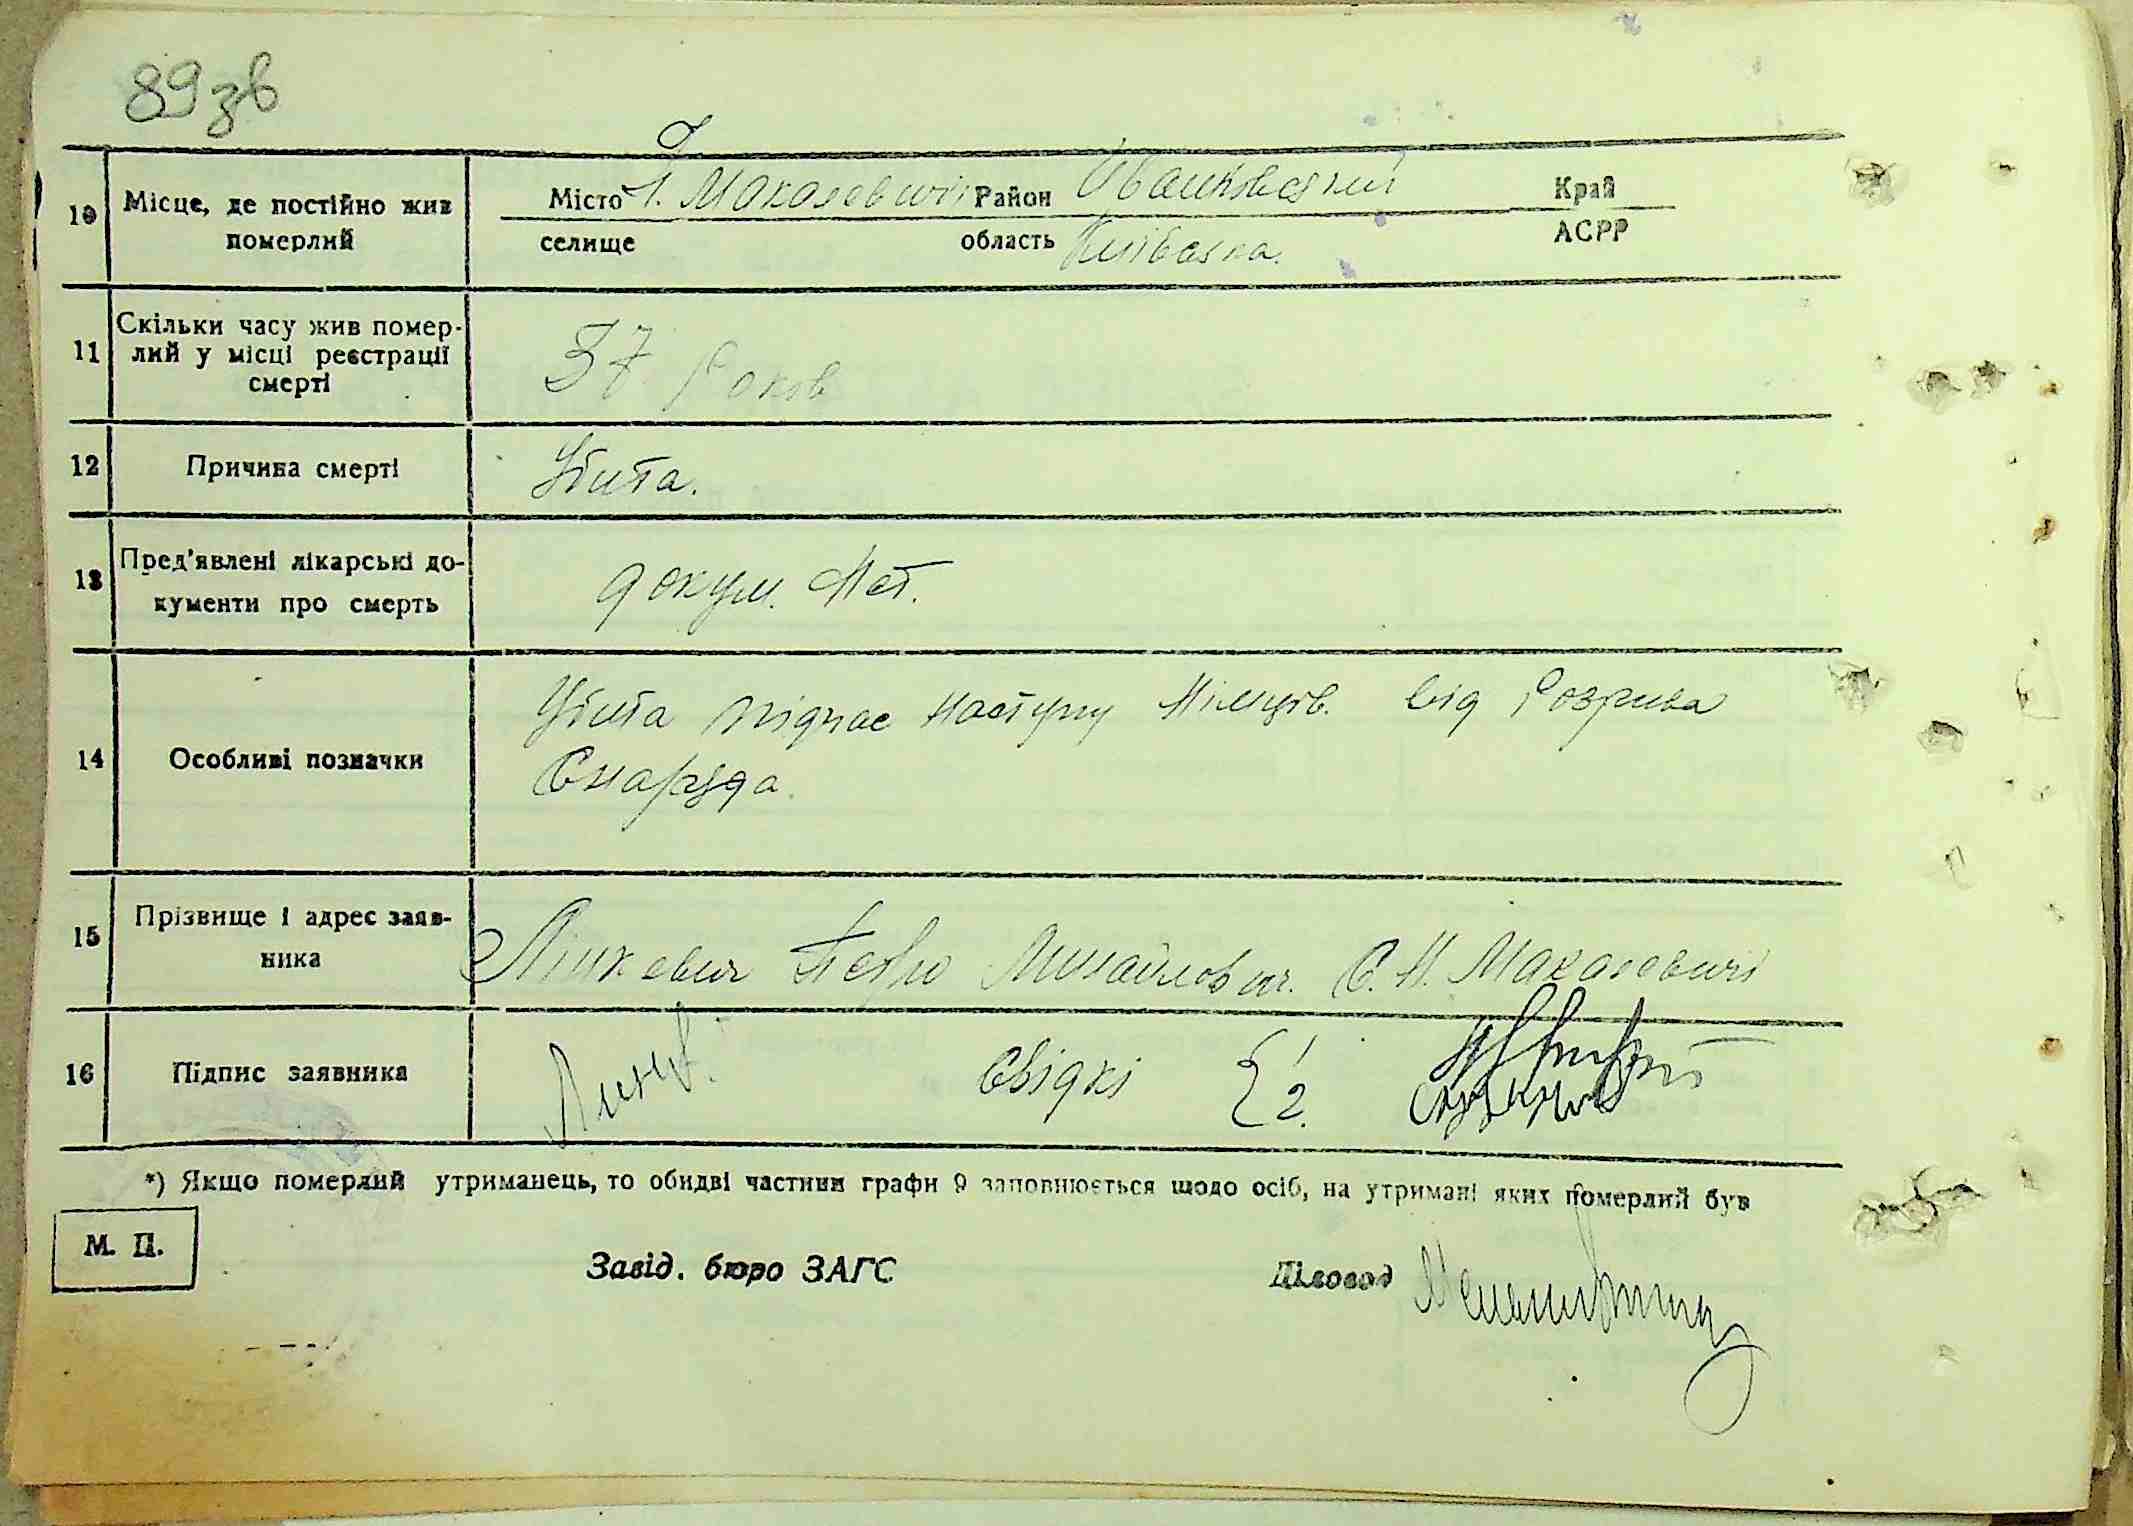 89зв
10 Місце, де постійно жив померлий
Місто Н. Макалевичі Район Іванковский Край
селище область Київська. АСРР
11 Скільки часу жив помер-
лий у місці реєстрації
смерті
37 Років
12 Причина смерті
Убита.
13 Пред'явлені лікарські до-
кументи про смерть
докум. Нет.
14 Особливі позначки
Убита підчас наступу Німців. від розрива
Снаряда.
15 Прізвище і адрес заяв-
ника
Лінкевич Петро Михайлович. С. Н. Макалевичі
16 Підпис заявника
Свідкі 1
2.
*) Якщо померлий утриманець, то обидві частини графи 9 заповнюється щодо осіб, на утримані яких померлий був
М. П.
Завід. бюро ЗАГС Діловод